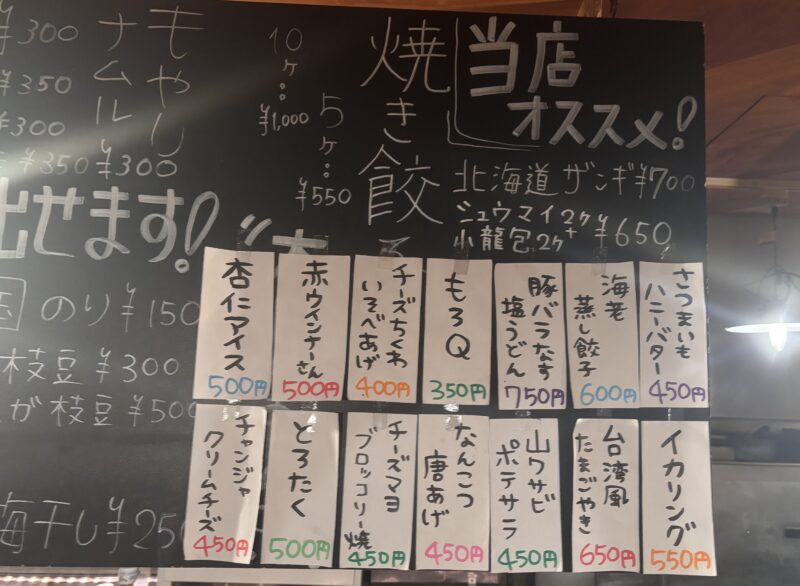 当店
オススメ!
北海道ザンギ¥700
シュウマイ2ヶ+
小龍包2ヶ ¥650
焼き餃子
5ヶ:¥550
10ヶ:¥1,000
もやし
ナムル
¥300
¥300
¥350
¥300
¥350
出せます!
のり¥150
枝豆¥300
が枝豆¥500
梅干し¥250
さつまいも
ハニーバター
450円
海老
蒸し餃子
600円
豚バラなす
塩うどん
750円
もろQ
350円
チーズちくわ
いそべあげ
400円
赤ウインナーさん
500円
杏仁アイス
500円
イカリング
550円
台湾風
たまごやき
650円
山ワサビ
ポテサラ
450円
なんこつ
唐あげ
450円
チーズマヨ
ブロッコリー焼
450円
とろたく
500円
チャンジャ
クリームチーズ
450円